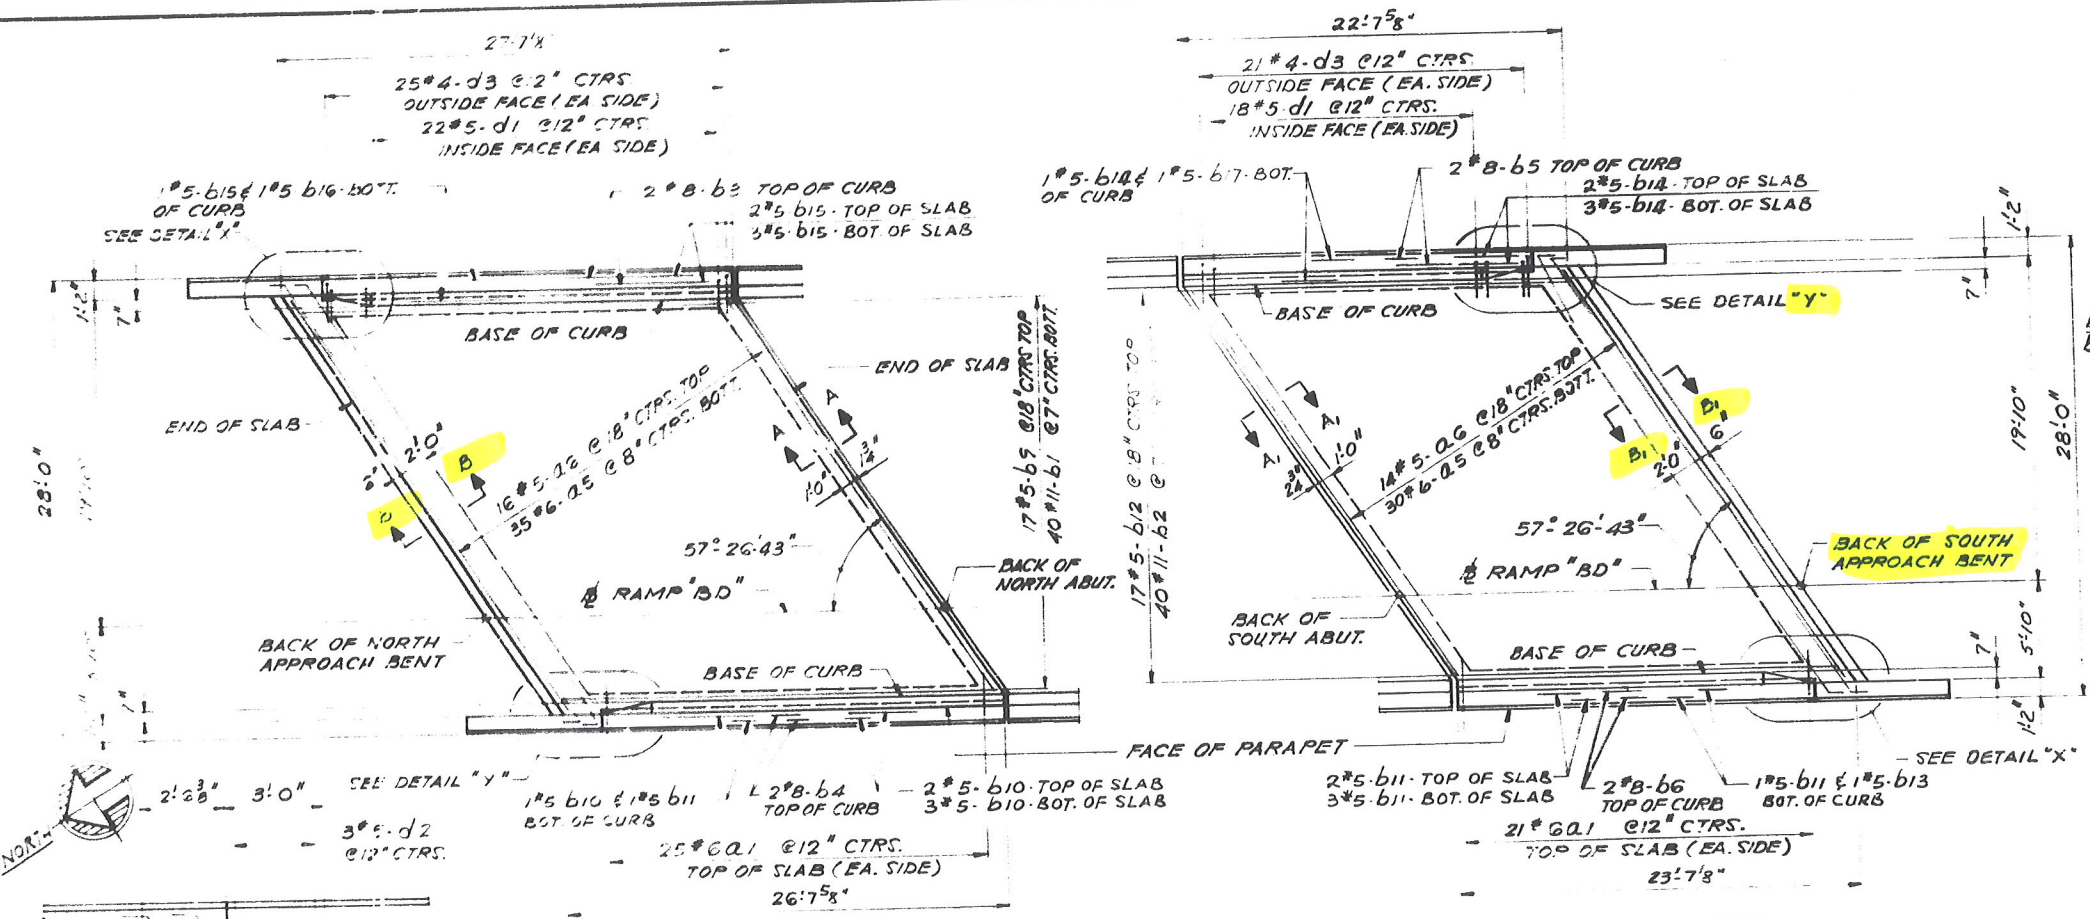 27'-7⅛"
25#4-d3 @12" CTRS.
OUTSIDE FACE (EA SIDE)
22#5-d1 @12" CTRS.
INSIDE FACE (EA SIDE)
1#5-b15 & 1#5 b16-BOTT.
OF CURB
SEE DETAIL "X"
2#8-b3 TOP OF CURB
2#5-b15-TOP OF SLAB
3#5-b15-BOT. OF SLAB
1'-2"
7"
BASE OF CURB
END OF SLAB
END OF SLAB
28'-0"
2'-0"
B
B
16#5-a6 @18" CTRS. TOP
35#6-a5 @8" CTRS. BOTT.
A
A
1'-0"
1¾"
17#5-b9 @18" CTRS TOP
40#11-b1 @7" CTRS. BOTT.
57°-26'-43"
℄ RAMP "BD"
BACK OF
NORTH ABUT.
BACK OF NORTH
APPROACH BENT
BASE OF CURB
7"
NORTH
2'-2⅜"
3'-0"
SEE DETAIL "Y"
3#5-d2
@12" CTRS.
1#5 b10 & 1#5 b11
BOT. OF CURB
2#8-b4
TOP OF CURB
2#5-b10-TOP OF SLAB
3#5-b10-BOT. OF SLAB
25#6a1 @12" CTRS.
TOP OF SLAB (EA. SIDE)
26'-7⅝"
FACE OF PARAPET
22'-7⅝"
21#4-d3 @12" CTRS.
OUTSIDE FACE (EA. SIDE)
18#5-d1 @12" CTRS.
INSIDE FACE (EA. SIDE)
1#5-b14 & 1#5-b17-BOT.
OF CURB
2#8-b5 TOP OF CURB
2#5-b14-TOP OF SLAB
3#5-b14-BOT. OF SLAB
1'-2"
7"
BASE OF CURB
SEE DETAIL "Y"
17#5-b12 @18" CTRS TOP
40#11-b2 @
A₁
A₁
1'-0"
2¾"
14#5-a6 @18" CTRS. TOP
30#6-a5 @8" CTRS. BOTT.
B₁
B₁
6"
2'-0"
19'-10"
28'-0"
57°-26'-43"
℄ RAMP "BD"
BACK OF SOUTH
APPROACH BENT
BACK OF
SOUTH ABUT.
BASE OF CURB
7"
5'-10"
1'-2"
SEE DETAIL "X"
2#5-b11-TOP OF SLAB
3#5-b11-BOT. OF SLAB
2#8-b6
TOP OF CURB
1#5-b11 & 1#5-b13
BOT. OF CURB
21#6a1 @12" CTRS.
TOP OF SLAB (EA. SIDE)
23'-7⅛"